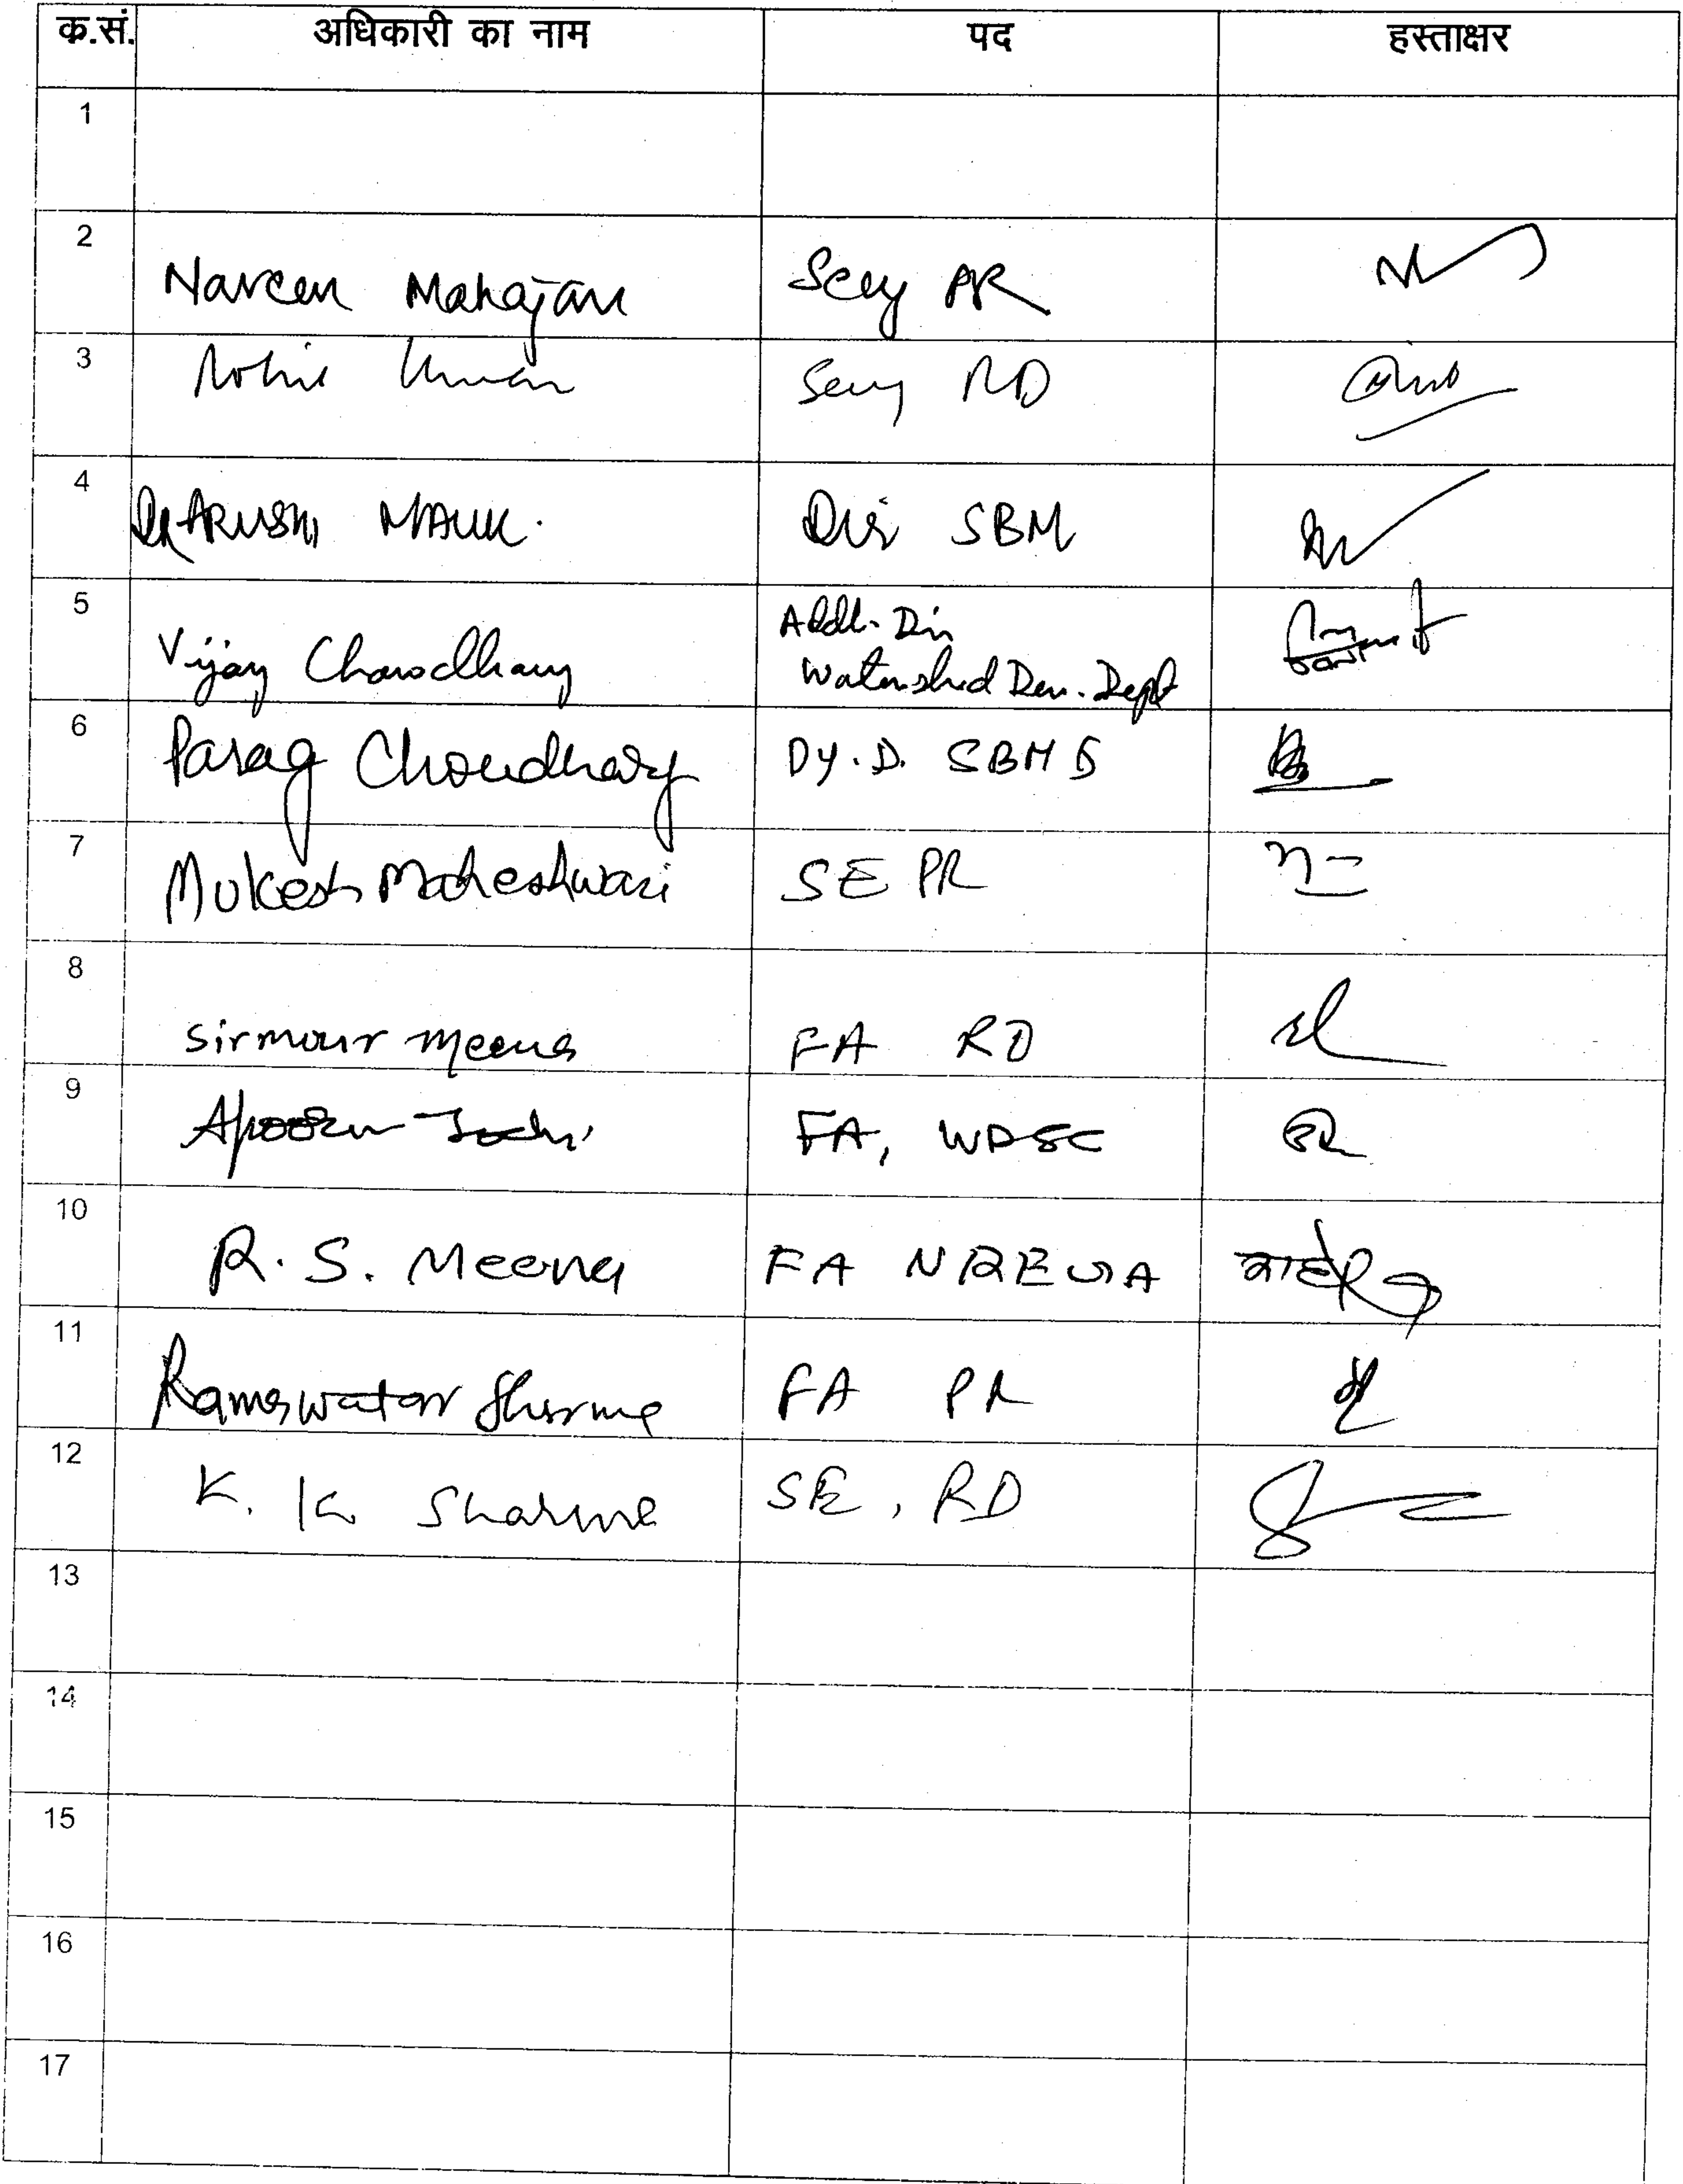 क.सं. अधिकारी का नाम पद हस्ताक्षर
1
2 Naveen Mahajan Secy PR
3 Rohit Kumar Secy RD
4 Dr ARUSHI MALIK. Dir SBM
5 Vijay Chowdhary Addl. Dir
Watershed Dev. Dept
6 Parag Choudhary Dy. D. SBM G
7 Mukesh Maheshwari SE PR
8 Sirmour Meena FA RD
9 Apoorv Joshi FA, WDSC
10 R. S. Meena FA NREGA
11 Ramawatar Sharma FA PR
12 K. K. Sharma SE, RD
13
14
15
16
17